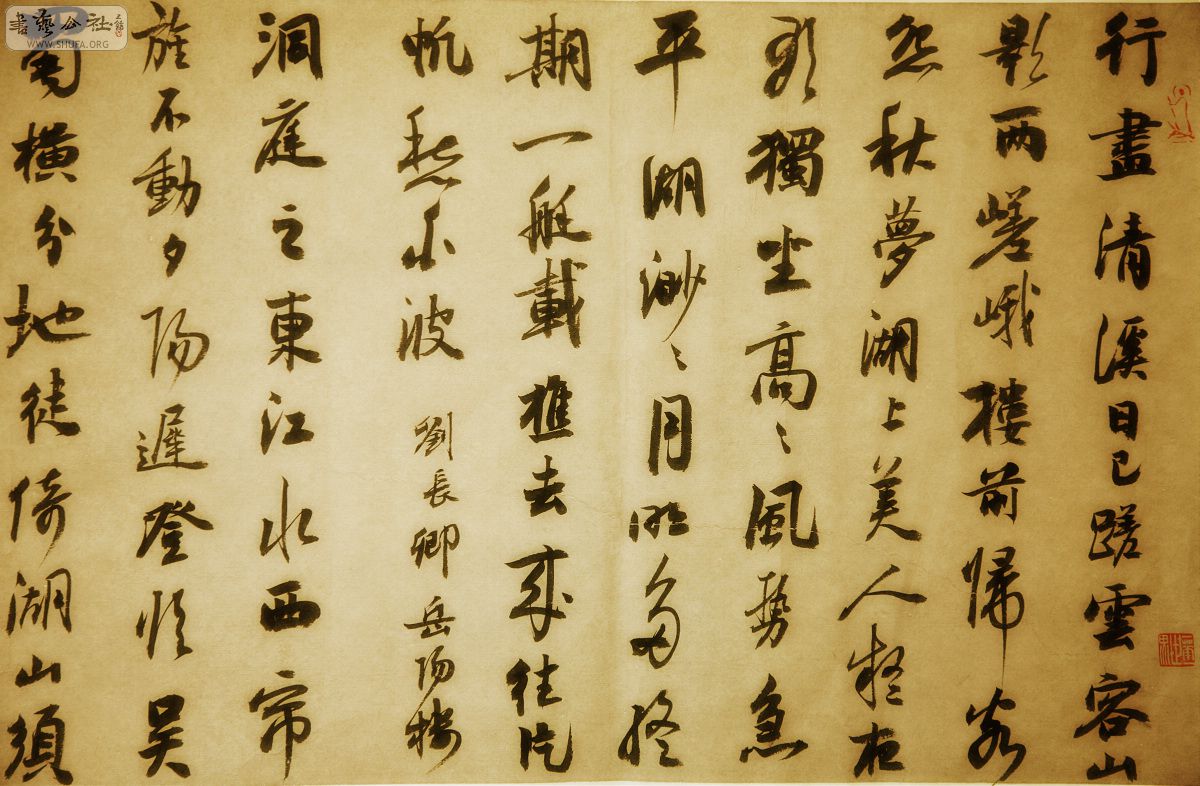 書藝公社
WWW.SHUFA.ORG
行盡清溪日已蹉雲容山
影兩嵯峨樓前歸客
怨秋夢湖上美人疑夜
歌獨坐高〻風勢急
平湖渺〻月明多終
期一艇載樵去來往片
帆愁波 劉長卿岳陽樓
洞庭之東江水西帘
旌不動夕陽遲登臨吳
蜀橫分地徒倚湖山須